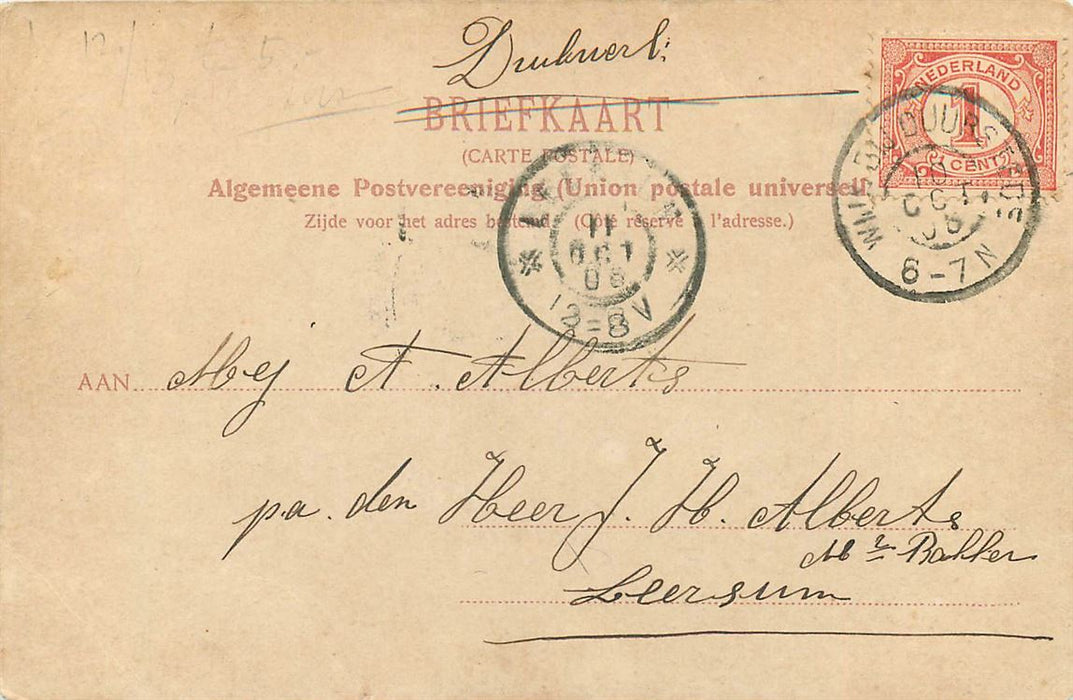 Drukwerk
BRIEFKAART
(CARTE POSTALE)
Algemeene Postvereeniging (Union postale universelle)
Zijde voor het adres bestemd. (Côté réservé à l'adresse.)
NEDERLAND
1
CENT
WIJK BIJ DUURSTEDE
10
OCT
06
6-7N
11
OCT
06
12-8V
AAN Mej A. Alberts
p.a. den Heer J. H. Alberts
Mr Bakker
Leersum